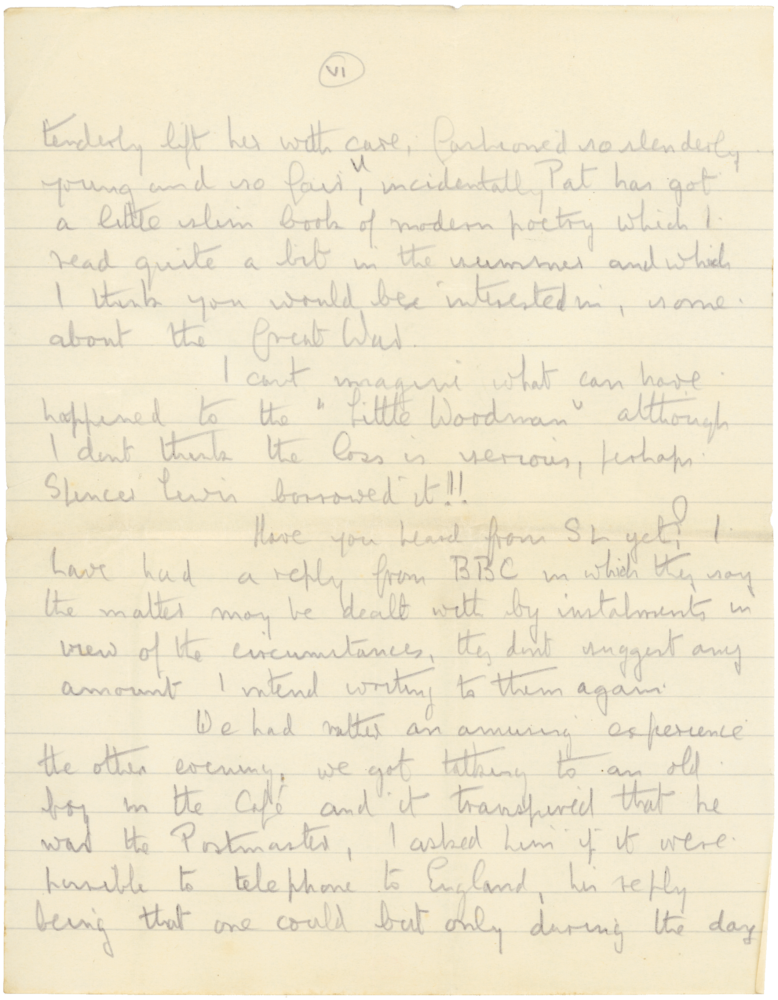 VI
tenderly lift her with care, fashioned so slenderly
young and so fair", incidentally Pat has got
a little slim book of modern poetry which I
read quite a bit in the summer and which
I think you would be interested in, some
about the Great War.
I cant imagine what can have
happened to the "Little Woodman" although
I dont think the loss is serious, perhaps
Spencer Lewis borrowed it!!
Have you heard from SL yet? I
have had a reply from BBC in which they say
the matter may be dealt with by instalments in
view of the circumstances, they dont suggest any
amount I intend writing to them again.
We had rather an amusing experience
the other evening, we got talking to an old
boy in the Café and it transpired that he
was the Postmaster, I asked him if it were
possible to telephone to England, his reply
being that one could but only during the day